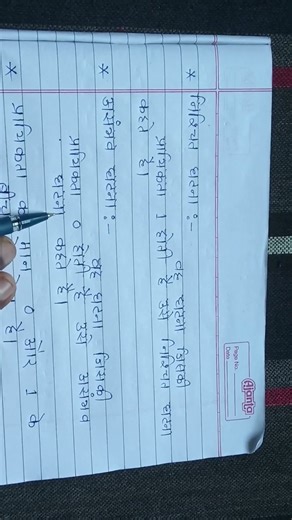 Ajanta
Page No.
Date
* निश्चित घटना :-
वह घटना जिसकी
प्रायिकता 1 होती है उसे निश्चित घटना
कहते हैं।
* असंभव घटना :-
वह घटना जिसकी
प्रायिकता 0 होती है उसे असंभव
घटना कहते हैं।
* प्रायिकता का मान 0 और 1 के
बीच है।